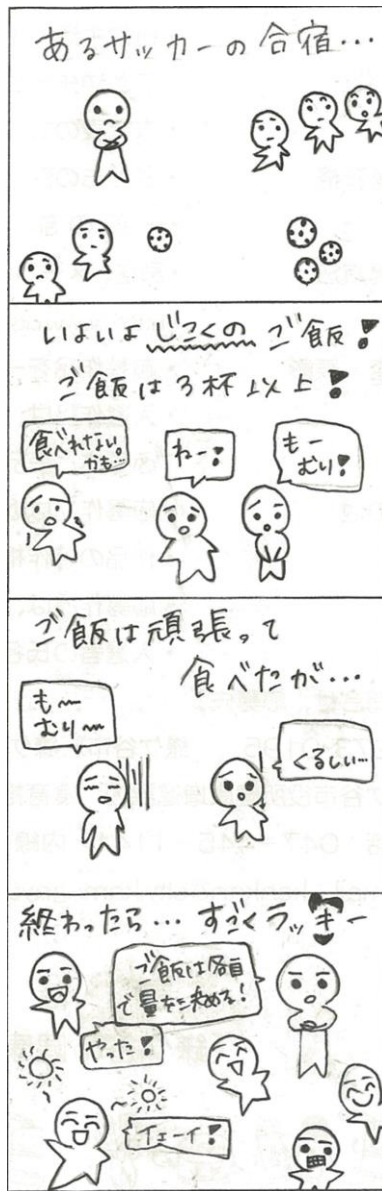 あるサッカーの合宿…
いよいよじごくのご飯!
ご飯は3杯以上!
食べれない。
かも…
ねー!
もー
むり!
ご飯は頑張って
食べたが…
も〜
むり〜
くるしい…
終わったら…すごくラッキー
ご飯は各自
で量を決める!
やった!
イェーイ!